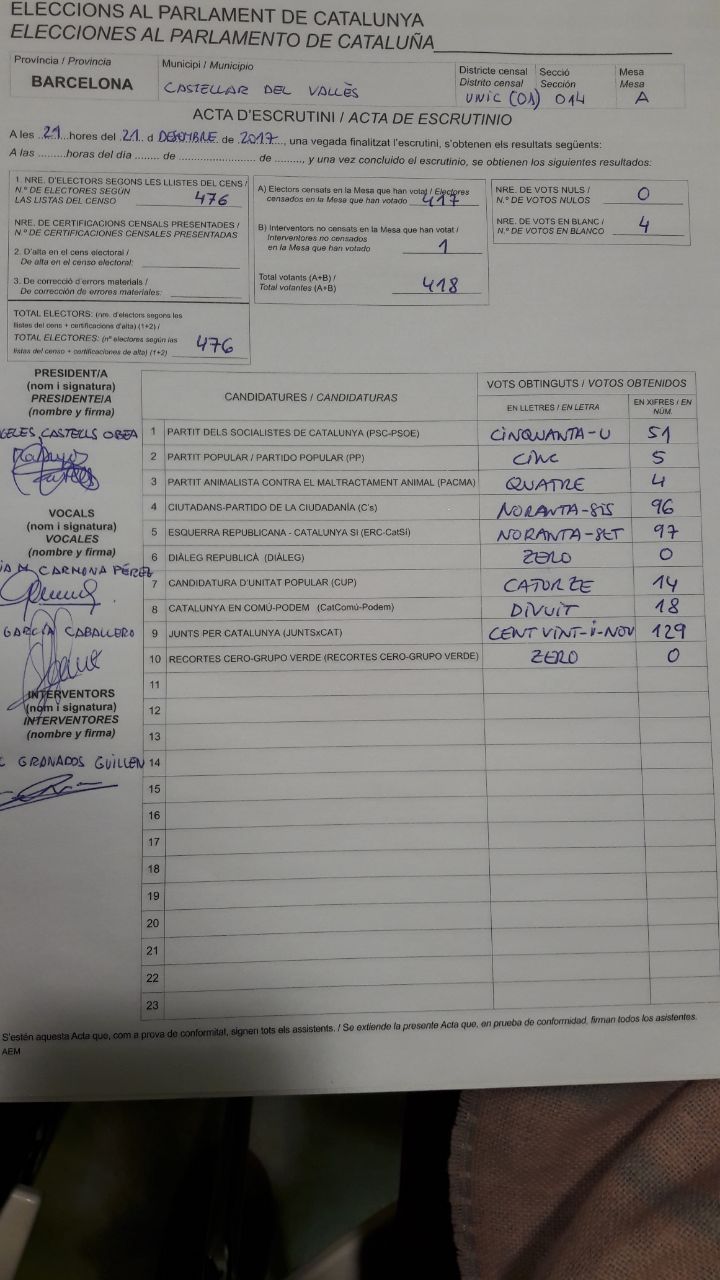 ELECCIONS AL PARLAMENT DE CATALUNYA
ELECCIONES AL PARLAMENTO DE CATALUÑA
Província / Provincia
BARCELONA
Municipi / Municipio
CASTELLAR DEL VALLÈS
Districte censal
Distrito censal
UNIC (01)
Secció
Sección
014
Mesa
Mesa
A
ACTA D'ESCRUTINI / ACTA DE ESCRUTINIO
A les ..21..hores del .21. d DESEMBRE de 2017..., una vegada finalitzat l'escrutini, s'obtenen els resultats següents:
A las .........horas del día ....... de ..................... de ........, y una vez concluido el escrutinio, se obtienen los siguientes resultados:
1. NRE. D'ELECTORS SEGONS LES LLISTES DEL CENS /
N.º DE ELECTORES SEGÚN
LAS LISTAS DEL CENSO 476
NRE. DE CERTIFICACIONS CENSALS PRESENTADES /
N.º DE CERTIFICACIONES CENSALES PRESENTADAS
2. D'alta en el cens electoral /
De alta en el censo electoral:
3. De correcció d'errors materials /
De corrección de errores materiales:
TOTAL ELECTORS: (nre. d'electors segons les
llistes del cens + certificacions d'alta) (1+2) /
TOTAL ELECTORES: (nº electores según las
listas del censo + certificaciones de alta) (1+2) 476
A) Electors censats en la Mesa que han votat / Electores
censados en la Mesa que han votado 417
B) Interventors no censats en la Mesa que han votat /
Interventores no censados
en la Mesa que han votado 1
Total votants (A+B) /
Total votantes (A+B) 418
NRE. DE VOTS NULS /
N.º DE VOTOS NULOS 0
NRE. DE VOTS EN BLANC /
N.º DE VOTOS EN BLANCO 4
PRESIDENT/A
(nom i signatura)
PRESIDENTE/A
(nombre y firma)
CASTELLS OBEA
VOCALS
(nom i signatura)
VOCALES
(nombre y firma)
M. CARMONA PÉREZ
GARCÍA CABALLERO
INTERVENTORS
(nom i signatura)
INTERVENTORES
(nombre y firma)
GRANADOS GUILLEN
CANDIDATURES / CANDIDATURAS
VOTS OBTINGUTS / VOTOS OBTENIDOS
EN LLETRES / EN LETRA
EN XIFRES / EN NÚM.
1 PARTIT DELS SOCIALISTES DE CATALUNYA (PSC-PSOE) CINQUANTA-U 51
2 PARTIT POPULAR / PARTIDO POPULAR (PP) CINC 5
3 PARTIT ANIMALISTA CONTRA EL MALTRACTAMENT ANIMAL (PACMA) QUATRE 4
4 CIUTADANS-PARTIDO DE LA CIUDADANÍA (C's) NORANTA-SIS 96
5 ESQUERRA REPUBLICANA - CATALUNYA SI (ERC-CatSí) NORANTA-SET 97
6 DIÀLEG REPUBLICÀ (DIÀLEG) ZERO 0
7 CANDIDATURA D'UNITAT POPULAR (CUP) CATORZE 14
8 CATALUNYA EN COMÚ-PODEM (CatComú-Podem) DIVUIT 18
9 JUNTS PER CATALUNYA (JUNTSxCAT) CENT VINT-I-NOU 129
10 RECORTES CERO-GRUPO VERDE (RECORTES CERO-GRUPO VERDE) ZERO 0
11
12
13
14
15
16
17
18
19
20
21
22
23
S'estén aquesta Acta que, com a prova de conformitat, signen tots els assistents. / Se extiende la presente Acta que, en prueba de conformidad, firman todos los asistentes.
AEM